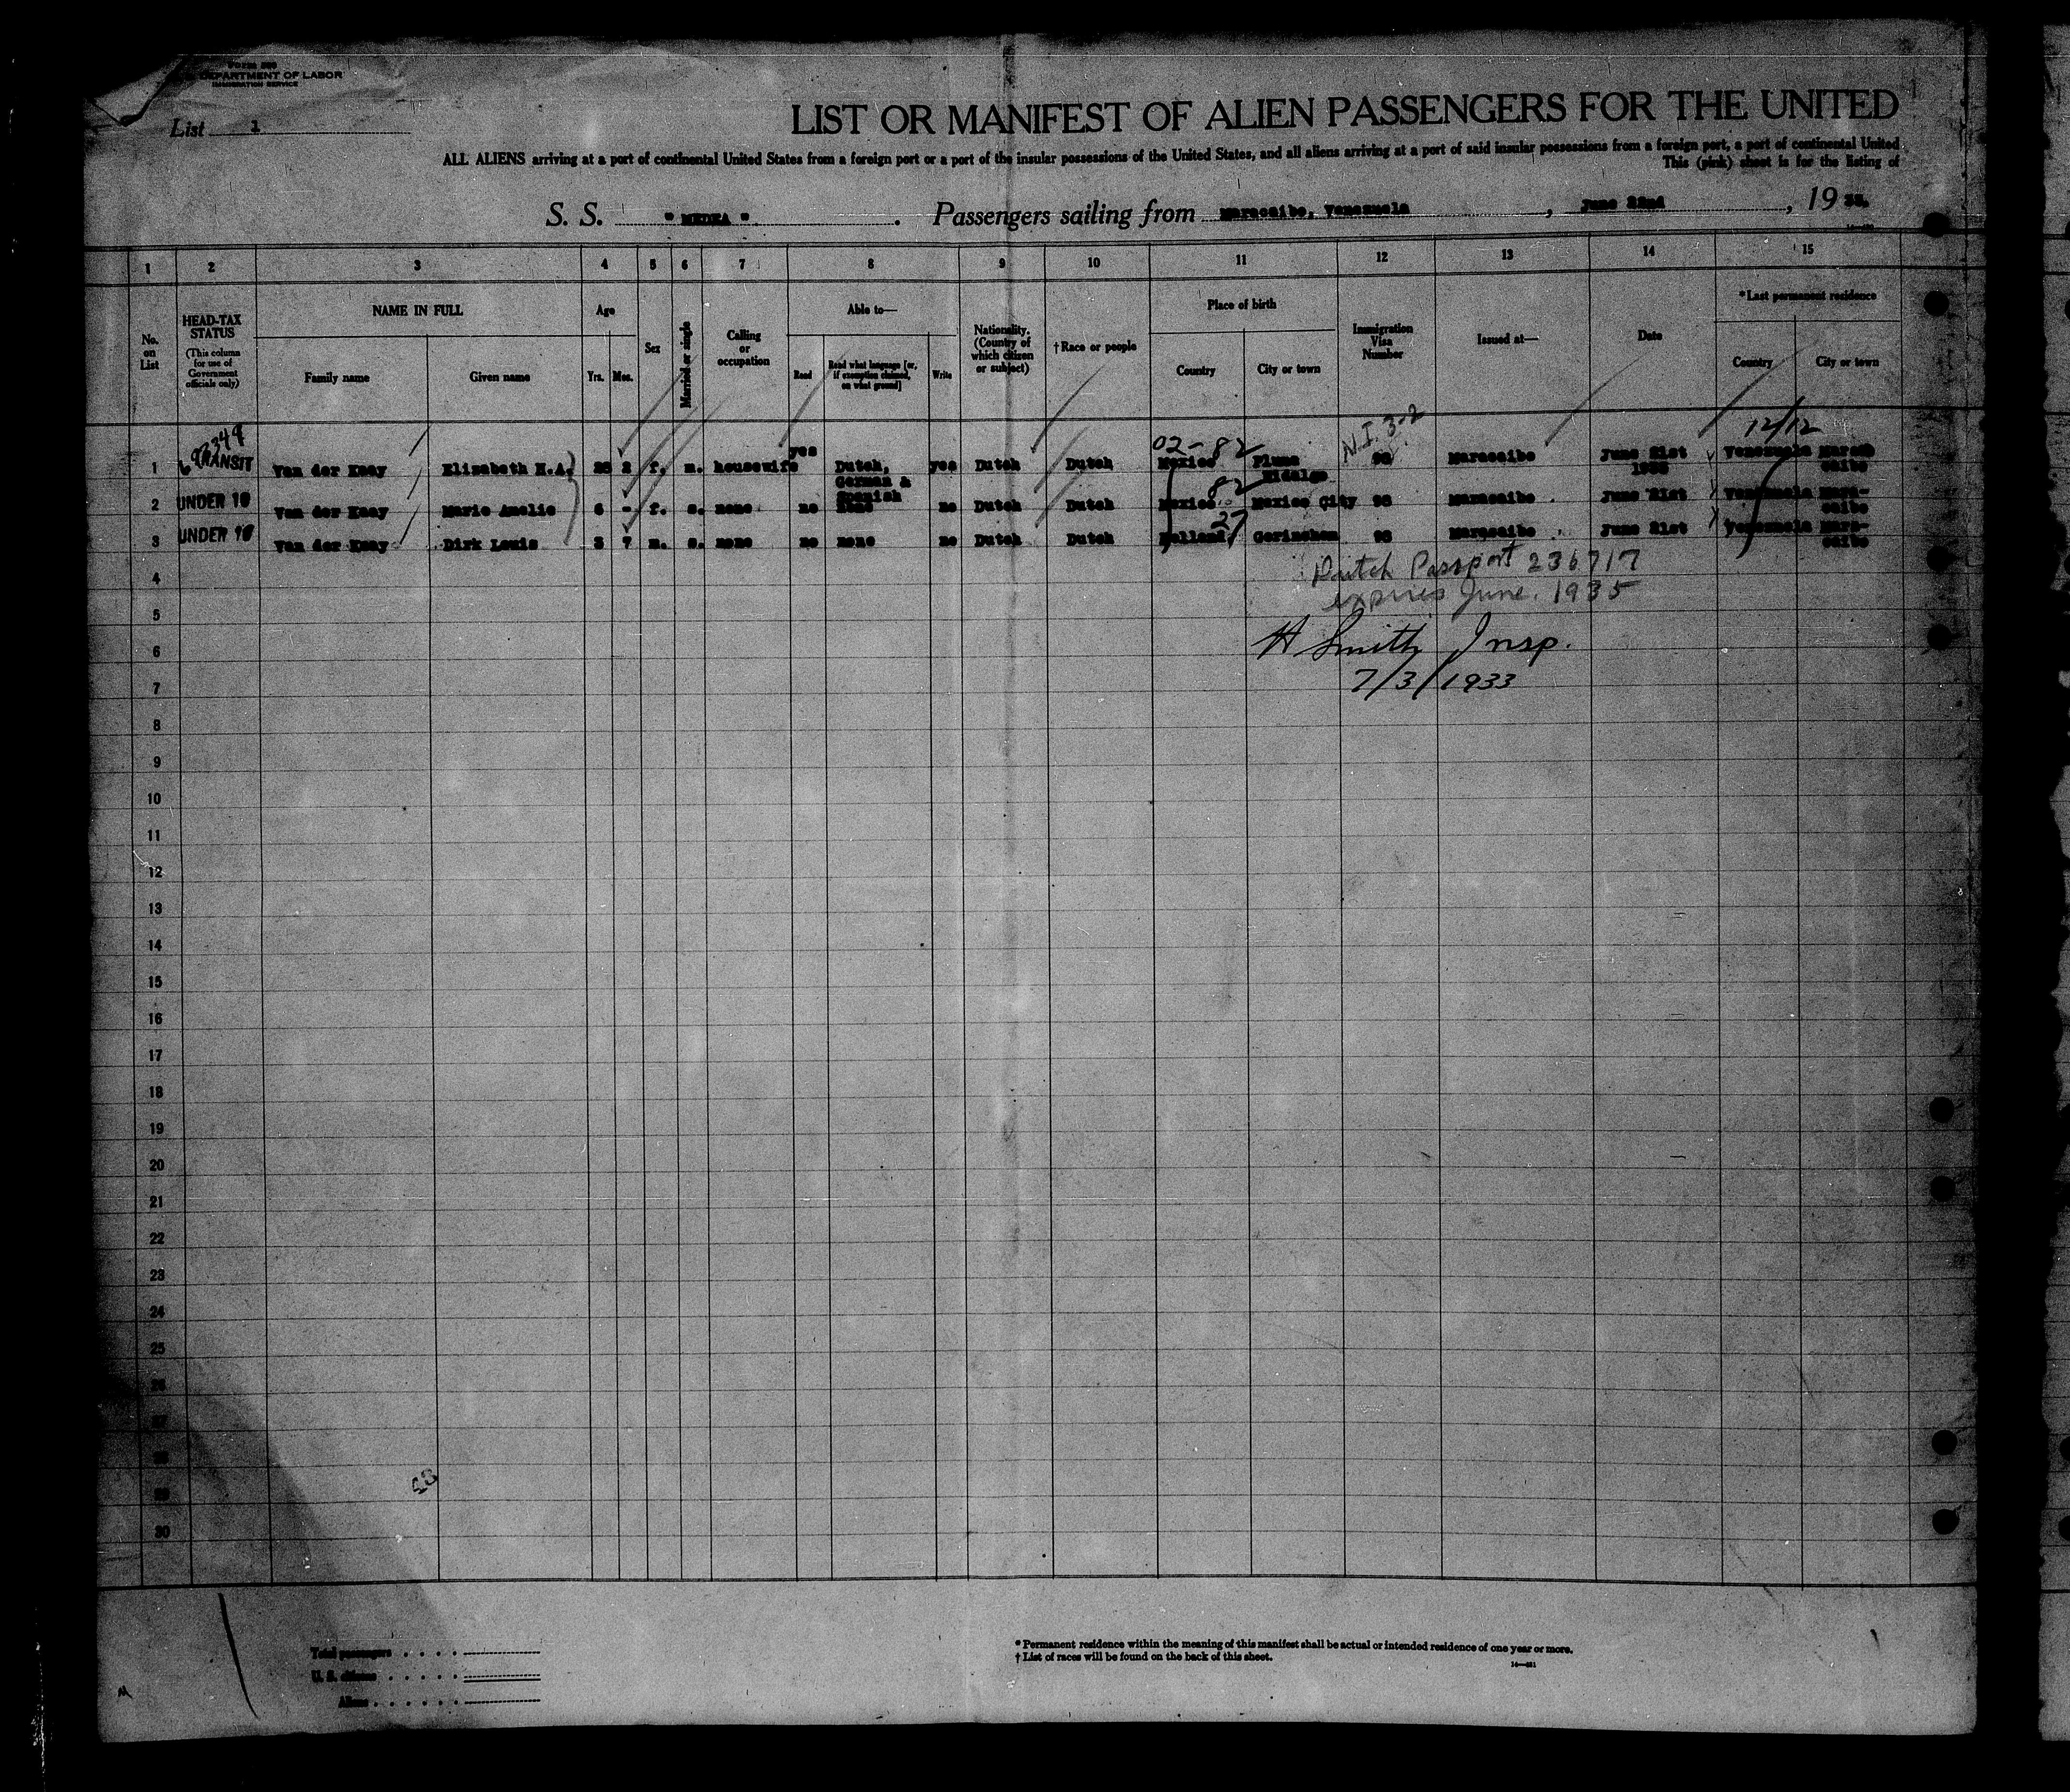 DEPARTMENT OF LABOR
IMMIGRATION SERVICE
List 1
LIST OR MANIFEST OF ALIEN PASSENGERS FOR THE UNITED
ALL ALIENS arriving at a port of continental United States from a foreign port or a port of the insular possessions of the United States, and all aliens arriving at a port of said insular possessions from a foreign port, a port of continental United
This (pink) sheet is for the listing of
S. S. " MEDEA " . Passengers sailing from Maracaibo, Venezuela , June 22nd , 19
1 2 3 4 5 6 7 8 9 10 11 12 13 14 15
No. on List
HEAD-TAX STATUS
(This column for use of Government officials only)
NAME IN FULL
Family name
Given name
Age
Yrs. Mos.
Sex
Married or single
Calling or occupation
Able to—
Read
Read what language [or, if exemption claimed, on what ground]
Write
Nationality. (Country of which citizen or subject)
† Race or people
Place of birth
Country
City or town
Immigration Visa Number
Issued at—
Date
* Last permanent residence
Country
City or town
02-82 N.I. 3-2 12/12
1 TRANSIT Van der Knay Elisabeth H.A. 2 f. m. housewife yes Dutch, German & Spanish yes Dutch Dutch Mexico Pluma Hidalgo 98 Maracaibo June 21st 1933 Venezuela Maracaibo
82
2 UNDER 16 Van der Knay Marie Amelie 6 - f. s. none no none no Dutch Dutch Mexico Mexico City 98 Maracaibo June 21st Venezuela Maracaibo
27
3 UNDER 16 Van der Knay Dirk Louis 3 7 m. s. none no none no Dutch Dutch Holland Gorinchem 98 Maracaibo June 21st Venezuela Maracaibo
4
Dutch Passport 236717
expires June. 1935
5
6
H Smith Insp.
7
7/3/1933
8
9
10
11
12
13
14
15
16
17
18
19
20
21
22
23
24
25
26
27
28
29
30
43
Total passengers
U. S. citizens
Aliens
* Permanent residence within the meaning of this manifest shall be actual or intended residence of one year or more.
† List of races will be found on the back of this sheet.